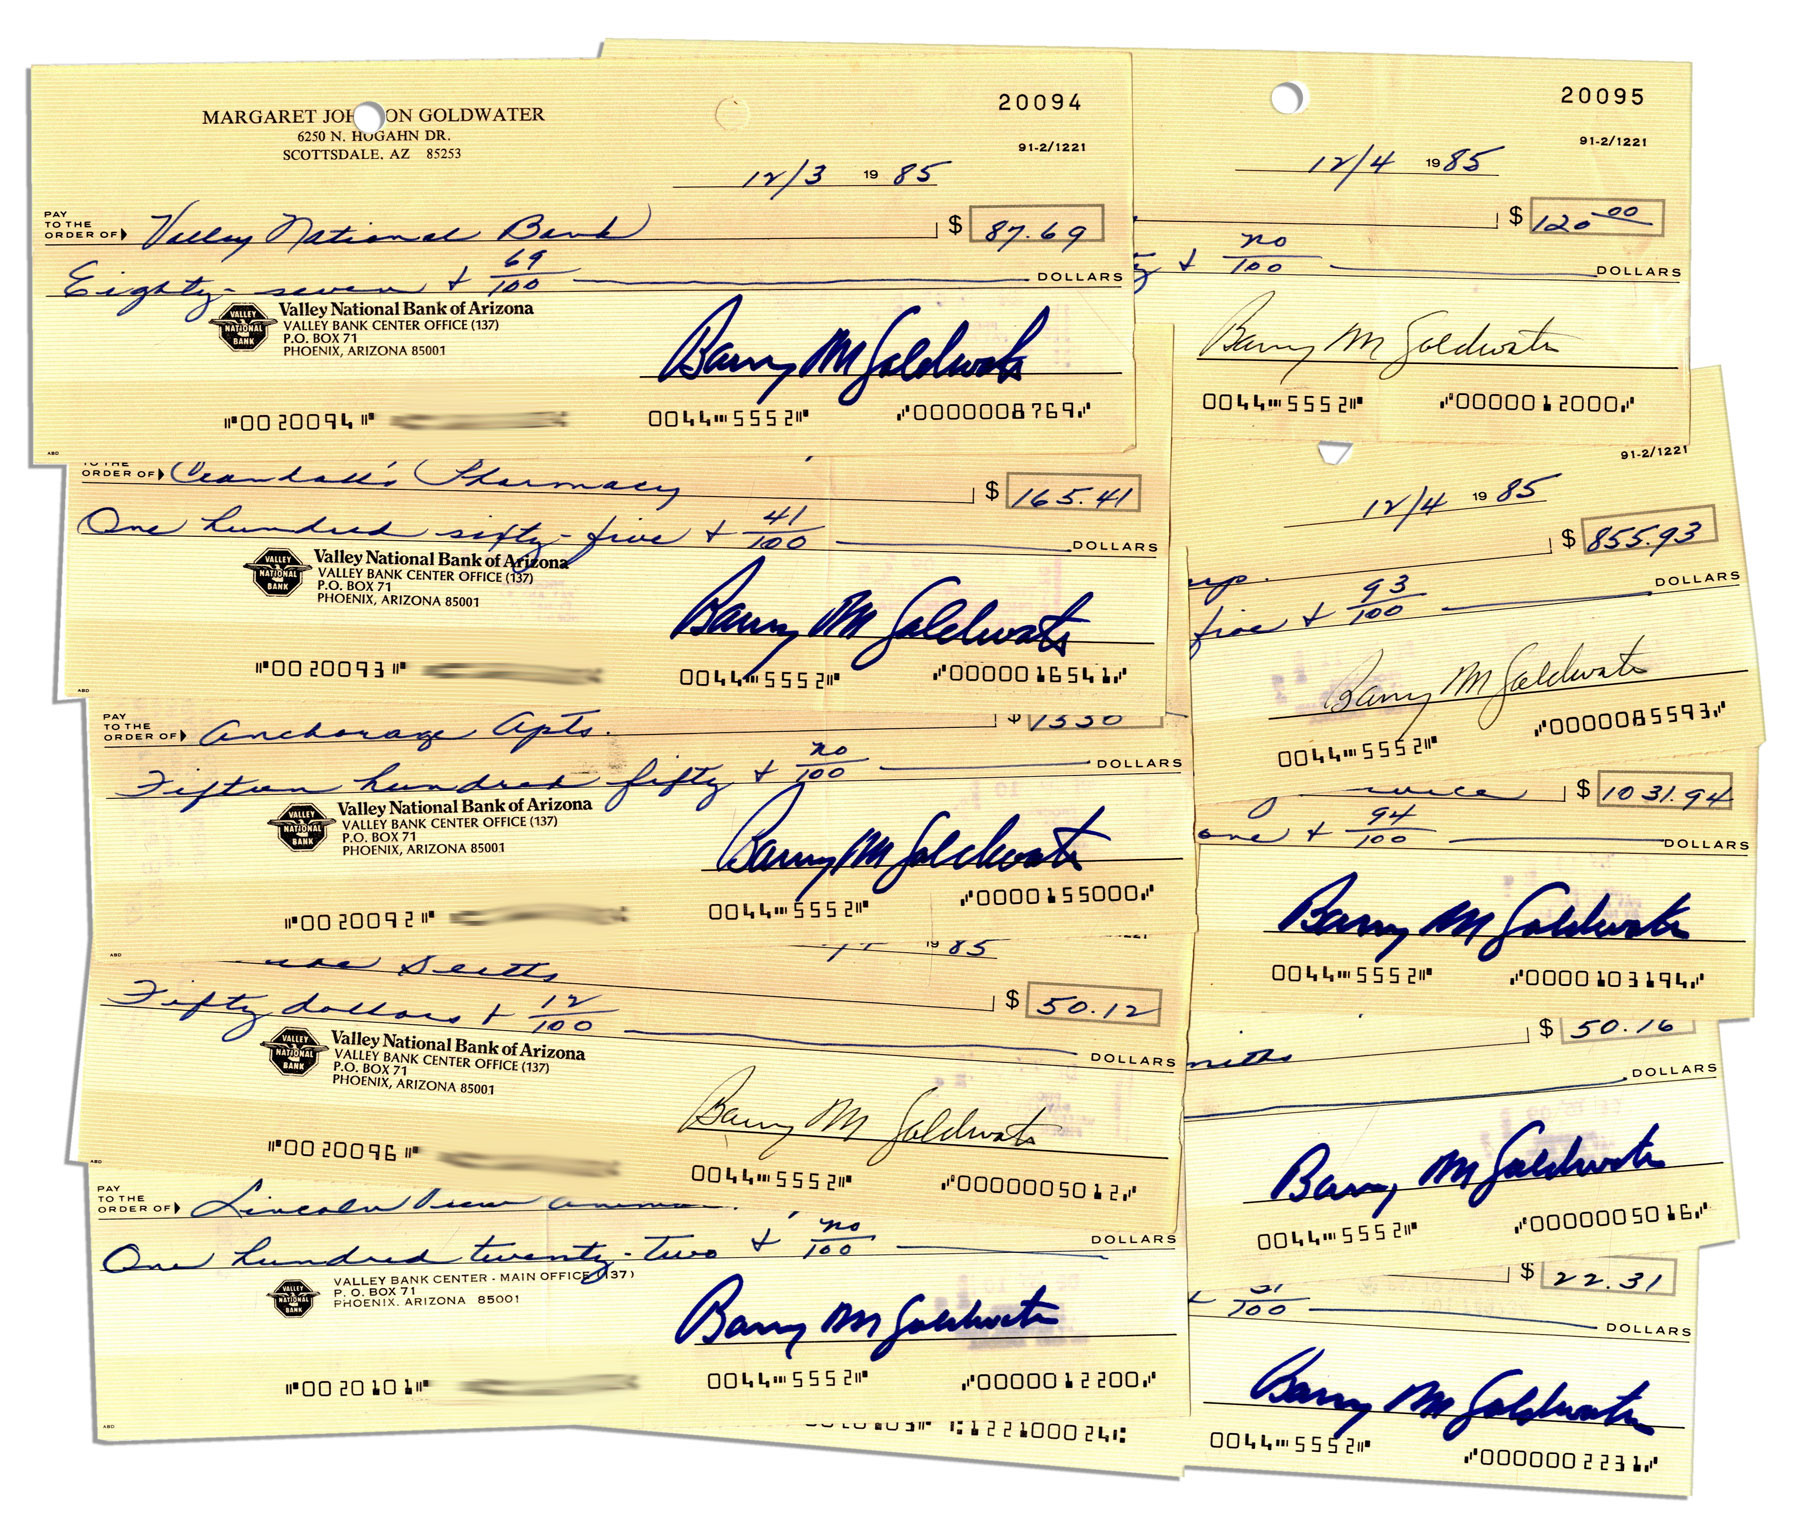 MARGARET JOH ON GOLDWATER
6250 N. HOGAHN DR.
SCOTTSDALE, AZ 85253
20094
91-2/1221
12/3 19 85
PAY
TO THE
ORDER OF Valley National Bank $ 87.69
Eighty-seven + 69/100 DOLLARS
Valley National Bank of Arizona
VALLEY BANK CENTER OFFICE (137)
P.O. BOX 71
PHOENIX, ARIZONA 85001
Barry M Goldwater
⑈0020094⑈ 0044⑉5552⑈ ⑇0000008769⑇
ABD
TO THE
ORDER OF Crandall's Pharmacy $ 165.41
One hundred sixty-five + 41/100 DOLLARS
Valley National Bank of Arizona
VALLEY BANK CENTER OFFICE (137)
P.O. BOX 71
PHOENIX, ARIZONA 85001
Barry M Goldwater
⑈0020093⑈ 0044⑉5552⑈ ⑇0000016541⑇
ABD
PAY
TO THE
ORDER OF Anchorage Apts. $ 1550
Fifteen hundred fifty + no/100 DOLLARS
Valley National Bank of Arizona
VALLEY BANK CENTER OFFICE (137)
P.O. BOX 71
PHOENIX, ARIZONA 85001
Barry M Goldwater
⑈0020092⑈ 0044⑉5552⑈ ⑇0000155000⑇
ABD
19 85
$ 50.12
Fifty dollars + 12/100 DOLLARS
Valley National Bank of Arizona
VALLEY BANK CENTER OFFICE (137)
P.O. BOX 71
PHOENIX, ARIZONA 85001
Barry M Goldwater
⑈0020096⑈ 0044⑉5552⑈ ⑇0000005012⑇
ABD
PAY
TO THE
ORDER OF Lincoln View
One hundred twenty-two + no/100 DOLLARS
VALLEY BANK CENTER - MAIN OFFICE (137)
P. O. BOX 71
PHOENIX, ARIZONA 85001
Barry M Goldwater
⑈0020101⑈ 0044⑉5552⑈ ⑇0000012200⑇
ABD
0020103⑈ ⑆122100024⑆
20095
91-2/1221
12/4 19 85
$ 120.00
+ no/100 DOLLARS
Barry M Goldwater
0044⑉5552⑈ ⑇0000012000⑇
91-2/1221
12/4 19 85
$ 855.93
five + 93/100 DOLLARS
Barry M Goldwater
0044⑉5552⑈ ⑇0000085593⑇
$ 1031.94
one + 94/100 DOLLARS
Barry M Goldwater
0044⑉5552⑈ ⑇0000103194⑇
$ 50.16
DOLLARS
Barry M Goldwater
0044⑉5552⑈ ⑇0000005016⑇
$ 22.31
+ 31/100 DOLLARS
Barry M Goldwater
0044⑉5552⑈ ⑇0000002231⑇